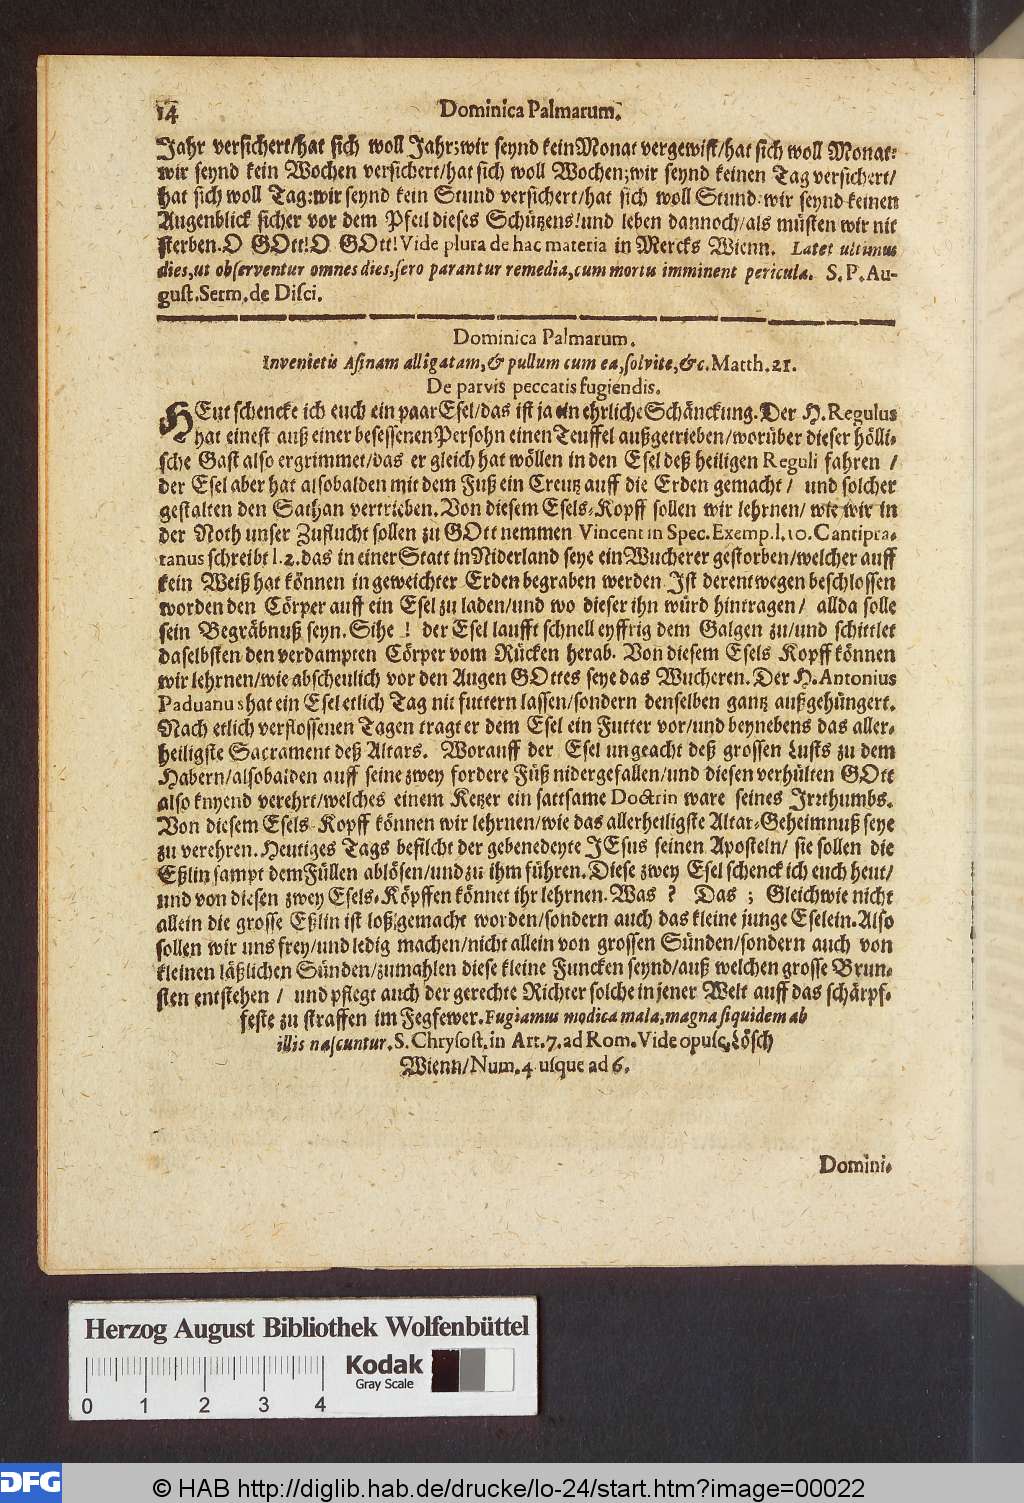 14 Dominica Palmarum.
Jahr versichert/hat sich woll Jahr; wir seynd kein Monat vergewist/hat sich woll Monat:
wir seynd kein Wochen versichert/hat sich woll Wochen; wir seynd keinen Tag versichert/
hat sich woll Tag: wir seynd kein Stund versichert/hat sich woll Stund: wir seynd keinen
Augenblick sicher vor dem Pfeil dieses Schützens! und leben dannoch/als müsten wir nit
sterben. O GOtt! O GOtt! Vide plura de hac materia in Mercks Wienn. Latet ultimus
dies, ut observentur omnes dies, sero parantur remedia, cum mortis imminent pericula. S. P. Au-
gust. Serm. de Disci.
Dominica Palmarum.
Invenietis Asinam alligatam, & pullum cum ea, solvite, &c. Matth. 21.
De parvis peccatis fugiendis.
HEut schencke ich euch ein paar Esel/das ist ja ein ehrliche Schänckung. Der H. Regulus
hat einest auß einer besessenen Persohn einen Teuffel außgetrieben/worüber dieser hölli-
sche Gast also ergrimmet/das er gleich hat wöllen in den Esel deß heiligen Reguli fahren /
der Esel aber hat alsobalden mit dem Fuß ein Creutz auff die Erden gemacht / und solcher
gestalten den Sathan vertrieben. Von diesem Esels-Kopff sollen wir lehrnen/ wie wir in
der Noth unser Zuflucht sollen zu GOtt nemmen Vincent in Spec. Exemp. l. 10. Cantipra-
tanus schreibt l. 2. das in einer Statt in Niderland seye ein Wucherer gestorben/welcher auff
kein Weiß hat können in geweichter Erden begraben werden. Ist derentwegen beschlossen
worden den Cörper auff ein Esel zu laden/und wo dieser ihn würd hintragen / allda solle
sein Begräbnuß seyn. Sihe ! der Esel laufft schnell eyffrig dem Galgen zu/und schittlet
daselbsten den verdampten Cörper vom Rücken herab. Von diesem Esels Kopff können
wir lehrnen/wie abscheulich vor den Augen GOttes seye das Wucheren. Der H. Antonius
Paduanus hat ein Esel etlich Tag nit futtern lassen/sondern denselben gantz außgehüngert.
Nach etlich verflossenen Tagen tragt er dem Esel ein Futter vor/und beynebens das aller-
heiligste Sacrament deß Altars. Worauff der Esel ungeacht deß grossen Lusts zu dem
Habern/alsobalden auff seine zwey fordere Füß nidergefallen/und diesen verhülten GOtt
also knyend verehrt/welches einem Ketzer ein sattsame Doctrin ware seines Irrthumbs.
Von diesem Esels-Kopff können wir lehrnen/wie das allerheiligste Altar-Geheimnuß seye
zu verehren. Heutiges Tags befilcht der gebenedeyte JEsus seinen Aposteln/ sie sollen die
Eßlin sampt dem Füllen ablösen/und zu ihm führen. Diese zwey Esel schenck ich euch heut/
und von diesen zwey Esels-Köpffen könnet ihr lehrnen. Was ? Das ; Gleichwie nicht
allein die grosse Eßlin ist loß gemacht worden/sondern auch das kleine junge Eselein. Also
sollen wir uns frey/und ledig machen/nicht allein von grossen Sünden/sondern auch von
kleinen läßlichen Sünden/zumahlen diese kleine Funcken seynd/auß welchen grosse Brun-
sten entstehen / und pflegt auch der gerechte Richter solche in jener Welt auff das schärpf-
feste zu straffen im Fegfewer. Fugiamus modica mala, magna siquidem ab
illis nascuntur. S. Chrysost. in Art. 7. ad Rom. Vide opusc. Lösch
Wienn/Num. 4 usque ad 6.
Domini-
Herzog August Bibliothek Wolfenbüttel
Kodak
Gray Scale
0 1 2 3 4
DFG
© HAB http://diglib.hab.de/drucke/lo-24/start.htm?image=00022